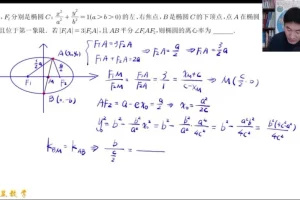 F₁分别是椭圆C: x²/a² + y²/b² = 1(a>b>0)的左、右焦点, B是椭圆C的下顶点, 点A在椭圆
且位于第一象限. 若|F₁A|=3|F₂A|, 且AB平分∠F₁AF₂, 则椭圆的离心率为 ______.
A(x₀,y₀)
F₁ F₂
B(0,-b)
{F₁A=3F₂A
⇒ F₂A=a/2 ⇒ F₁A=3/2a
F₁M/F₂M = F₁A/F₂A = 3/1 = ⇒ M(c/2, 0)
AF₂ = a-ex₀ = a/2 ⇒ x₀ = a²/2c
y₀² = b² - b²/a² x₀² = b² - b²/a² · a⁴/4c² = b² - a²b²/4c² = b²(4c²-a²)/4c²
k_BM = k_AB ⇒ b/(c/2) =